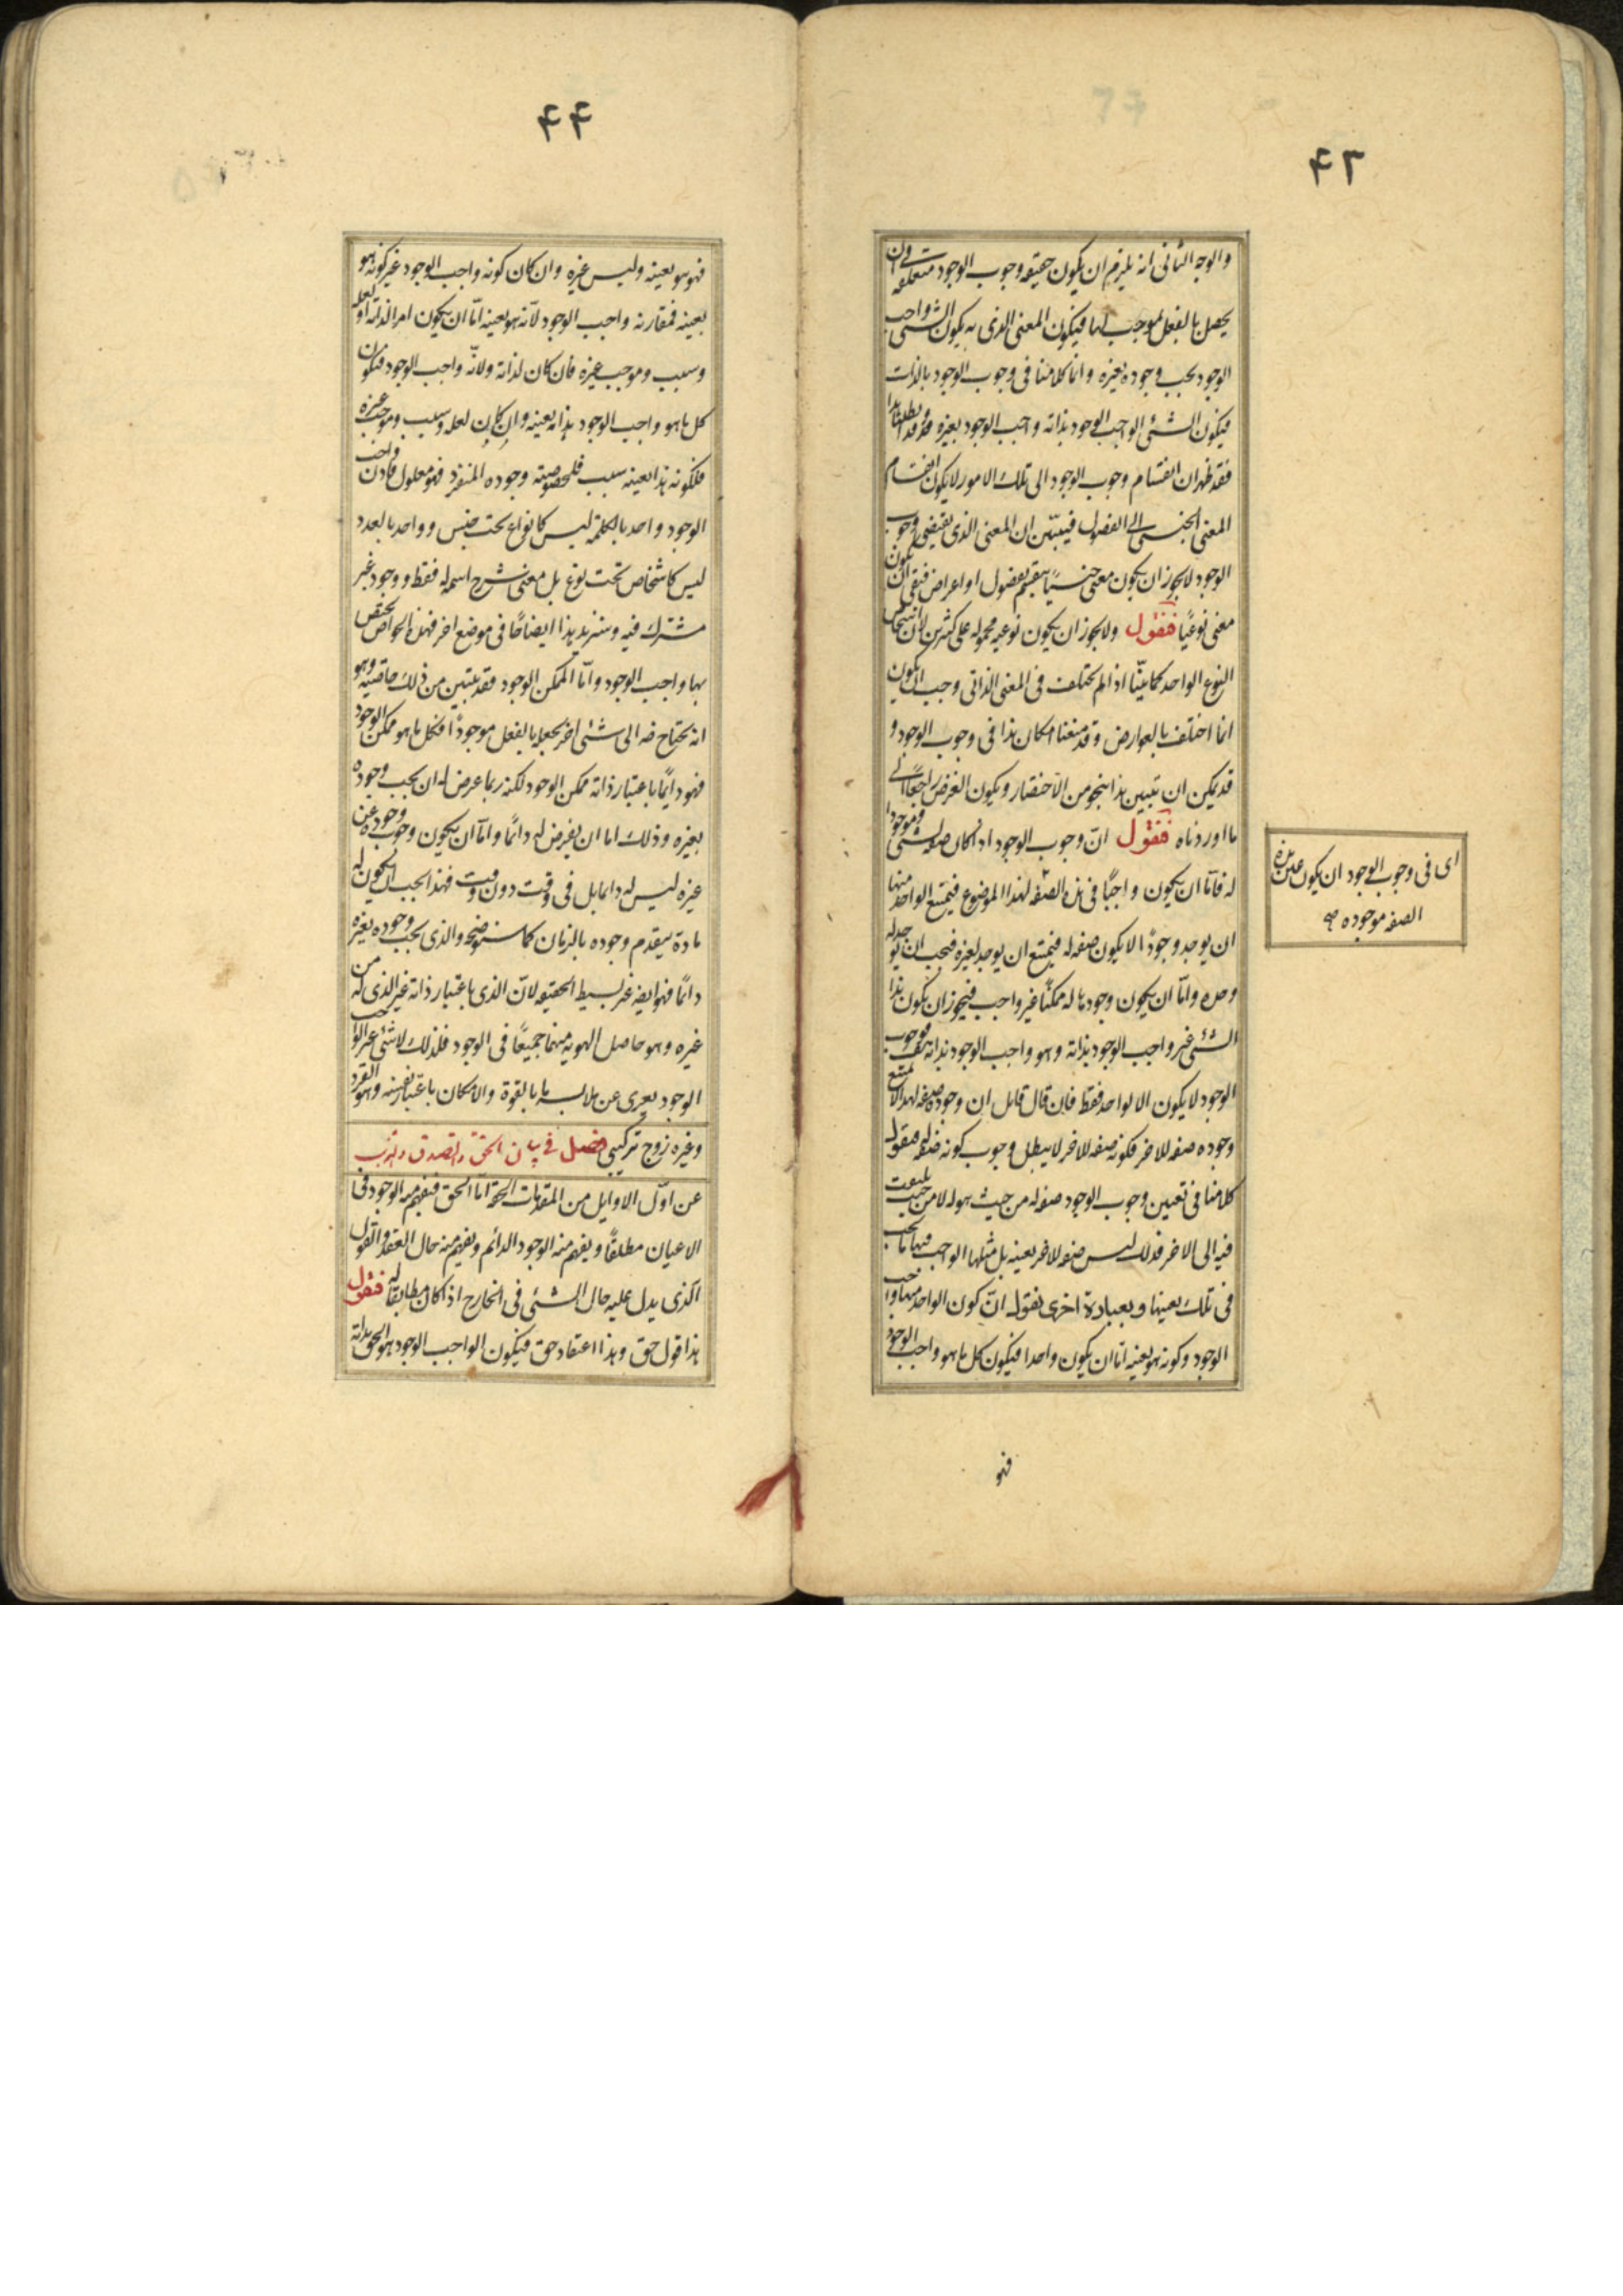 ۴۳
والوجه الثانى انه يلزم ان يكون حقيقه وجوب الوجود متعلقه فى ان
يحصل بالفعل بموجب لها فيكون المعنى الذى به يكون الشئ واجب
الوجود يجب وجوده بغيره وانما كلامنا فى وجوب الوجود بالذات
فيكون الشئ الواجب الوجود بذاته واجب الوجود بغيره وقد ابطلنا هذا
فقد ظهر ان انقسام وجوب الوجود الى تلك الامور لا يكون انقسام
المعنى الجنسى الى الفصول فيتبيّن ان المعنى الذى يقتضى وجوب
الوجود لا يجوز ان يكون معنى جنسيًا ينقسم بفصول او اعراض فبقى ان يكون
معنى نوعيًا فنقول ولا يجوز ان يكون نوعيه محموله على كثيرين لان اشخاص
النوع الواحد كما بيّنّا اذا لم تختلف فى المعنى الذاتى وجب ان يكون
انما اختلف بالعوارض وقد منعنا امكان هذا فى وجوب الوجود و
قد يمكن ان نبين هذا بنحو من الاختصار ويكون الغرض راجعًا الى
ما اوردناه فنقول انّ وجوب الوجود اذا كان صفه لشئ وموجودا
له فامّا ان يكون واجبًا فى هذه الصفه لهذا الموضوع فيمتنع الواحد منها
ان يوجد وجودًا لا يكون صفه له فيمتنع ان يوجد لغيره فيجب ان يوجد له
وحده وامّا ان يكون وجودها له ممكنًا غير واجب فيجوز ان يكون هذا
الشئ غير واجب الوجود بذاته وهو واجب الوجود بذاته هف فوجوب
الوجود لا يكون الا لواحد فقط فان قال قايل ان وجوده صفه لهذا لا يمتنع
وجوده صفه للاخر فكونه صفه للاخر لا يبطل وجوب كونه صفه له فنقول
كلامنا فى تعيين وجوب الوجود صفه له من حيث هو له لا من حيث يلتفت
فيه الى الاخر فذلك ليس صفه للاخر بعينه بل مثلها الواجب فيها ما يجب
فى تلك بعينها وبعبارة اخرى نقول انّ كون الواحد منها واجب
الوجود وكونه هو بعينه امّا ان يكون واحدا فيكون كل ما هو واجب الوجود
فهو
اى فى وجوب الوجود ان يكون عين هذه
الصفه موجوده
۴۴
فهو هو بعينه وليس غيره وان كان كونه واجب الوجود غير كونه هو
بعينه فمقارنه واجب الوجود لانّه هو بعينه امّا ان يكون امرا لذاته او لعله
وسبب وموجب غيره فان كان لذاته ولانّه واجب الوجود فيكون
كل ما هو واجب الوجود هذا بعينه وان كان لعله وسبب وموجب غيره
فلكونه هذا بعينه سبب فلخصوصيته وجوده المنفرد فهو معلول فاذن واجب
الوجود واحد بالكلمة ليس كانواع تحت جنس وواحد بالعدد
ليس كاشخاص تحت نوع بل معنى شرح اسمه له فقط ووجود غير
مشترك فيه وسنزيد هذا ايضاحًا فى موضع اخر فهذه الخواص التى يختص
بها واجب الوجود وامّا الممكن الوجود فقد تبين من ذلك خاصيته وهو
انه يحتاج ضه الى شئ اخر يجعله بالفعل موجودًا فكل ما هو ممكن الوجود
فهو دايمًا باعتبار ذاته ممكن الوجود لكنه ربما عرض له ان يجب وجوده
بغيره وذلك اما ان يفرض له دائمًا وامّا ان يكون وجوب وجوده عن
غيره ليس له دايما بل فى وقت دون وقت فهذا يجب ان يكون له
مادة يتقدم وجوده بالزمان كما سنوضحه والذى يجب وجوده بغيره
دائمًا فهو ايضه غير بسيط الحقيقه لانّ الذى باعتبار ذاته غير الذى له من
غيره وهو حاصل الهويه منهما جميعًا فى الوجود فلذلك لا شئ غير الواجب
الوجود يعرى عن ملابسه ما بالقوة والامكان باعتبار نفسه وهو الفرد
وغيره زوج تركيبى فصل فى بيان الحق والصدق والذب
عن اوّل الاوايل من المقدمات الحقه امّا الحق فيفهم منه الوجود فى
الاعيان مطلقًا ويفهم منه الوجود الدائم ويفهم منه حال العقد والقول
الذى يدل عليه حال الشئ فى الخارج اذا كان مطابقا له فنقول
هذا قول حق وهذا اعتقاد حق فيكون الواجب الوجود هو الحق بذاته